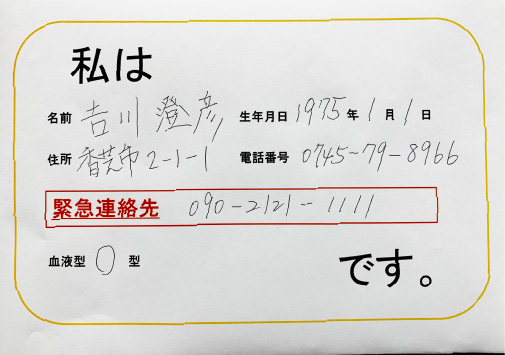 私は
名前 吉川 澄彦 生年月日 1975年 1月 1日
住所 香芝市2-1-1 電話番号 0745-79-8966
緊急連絡先 090-2121-1111
血液型 O 型
です。